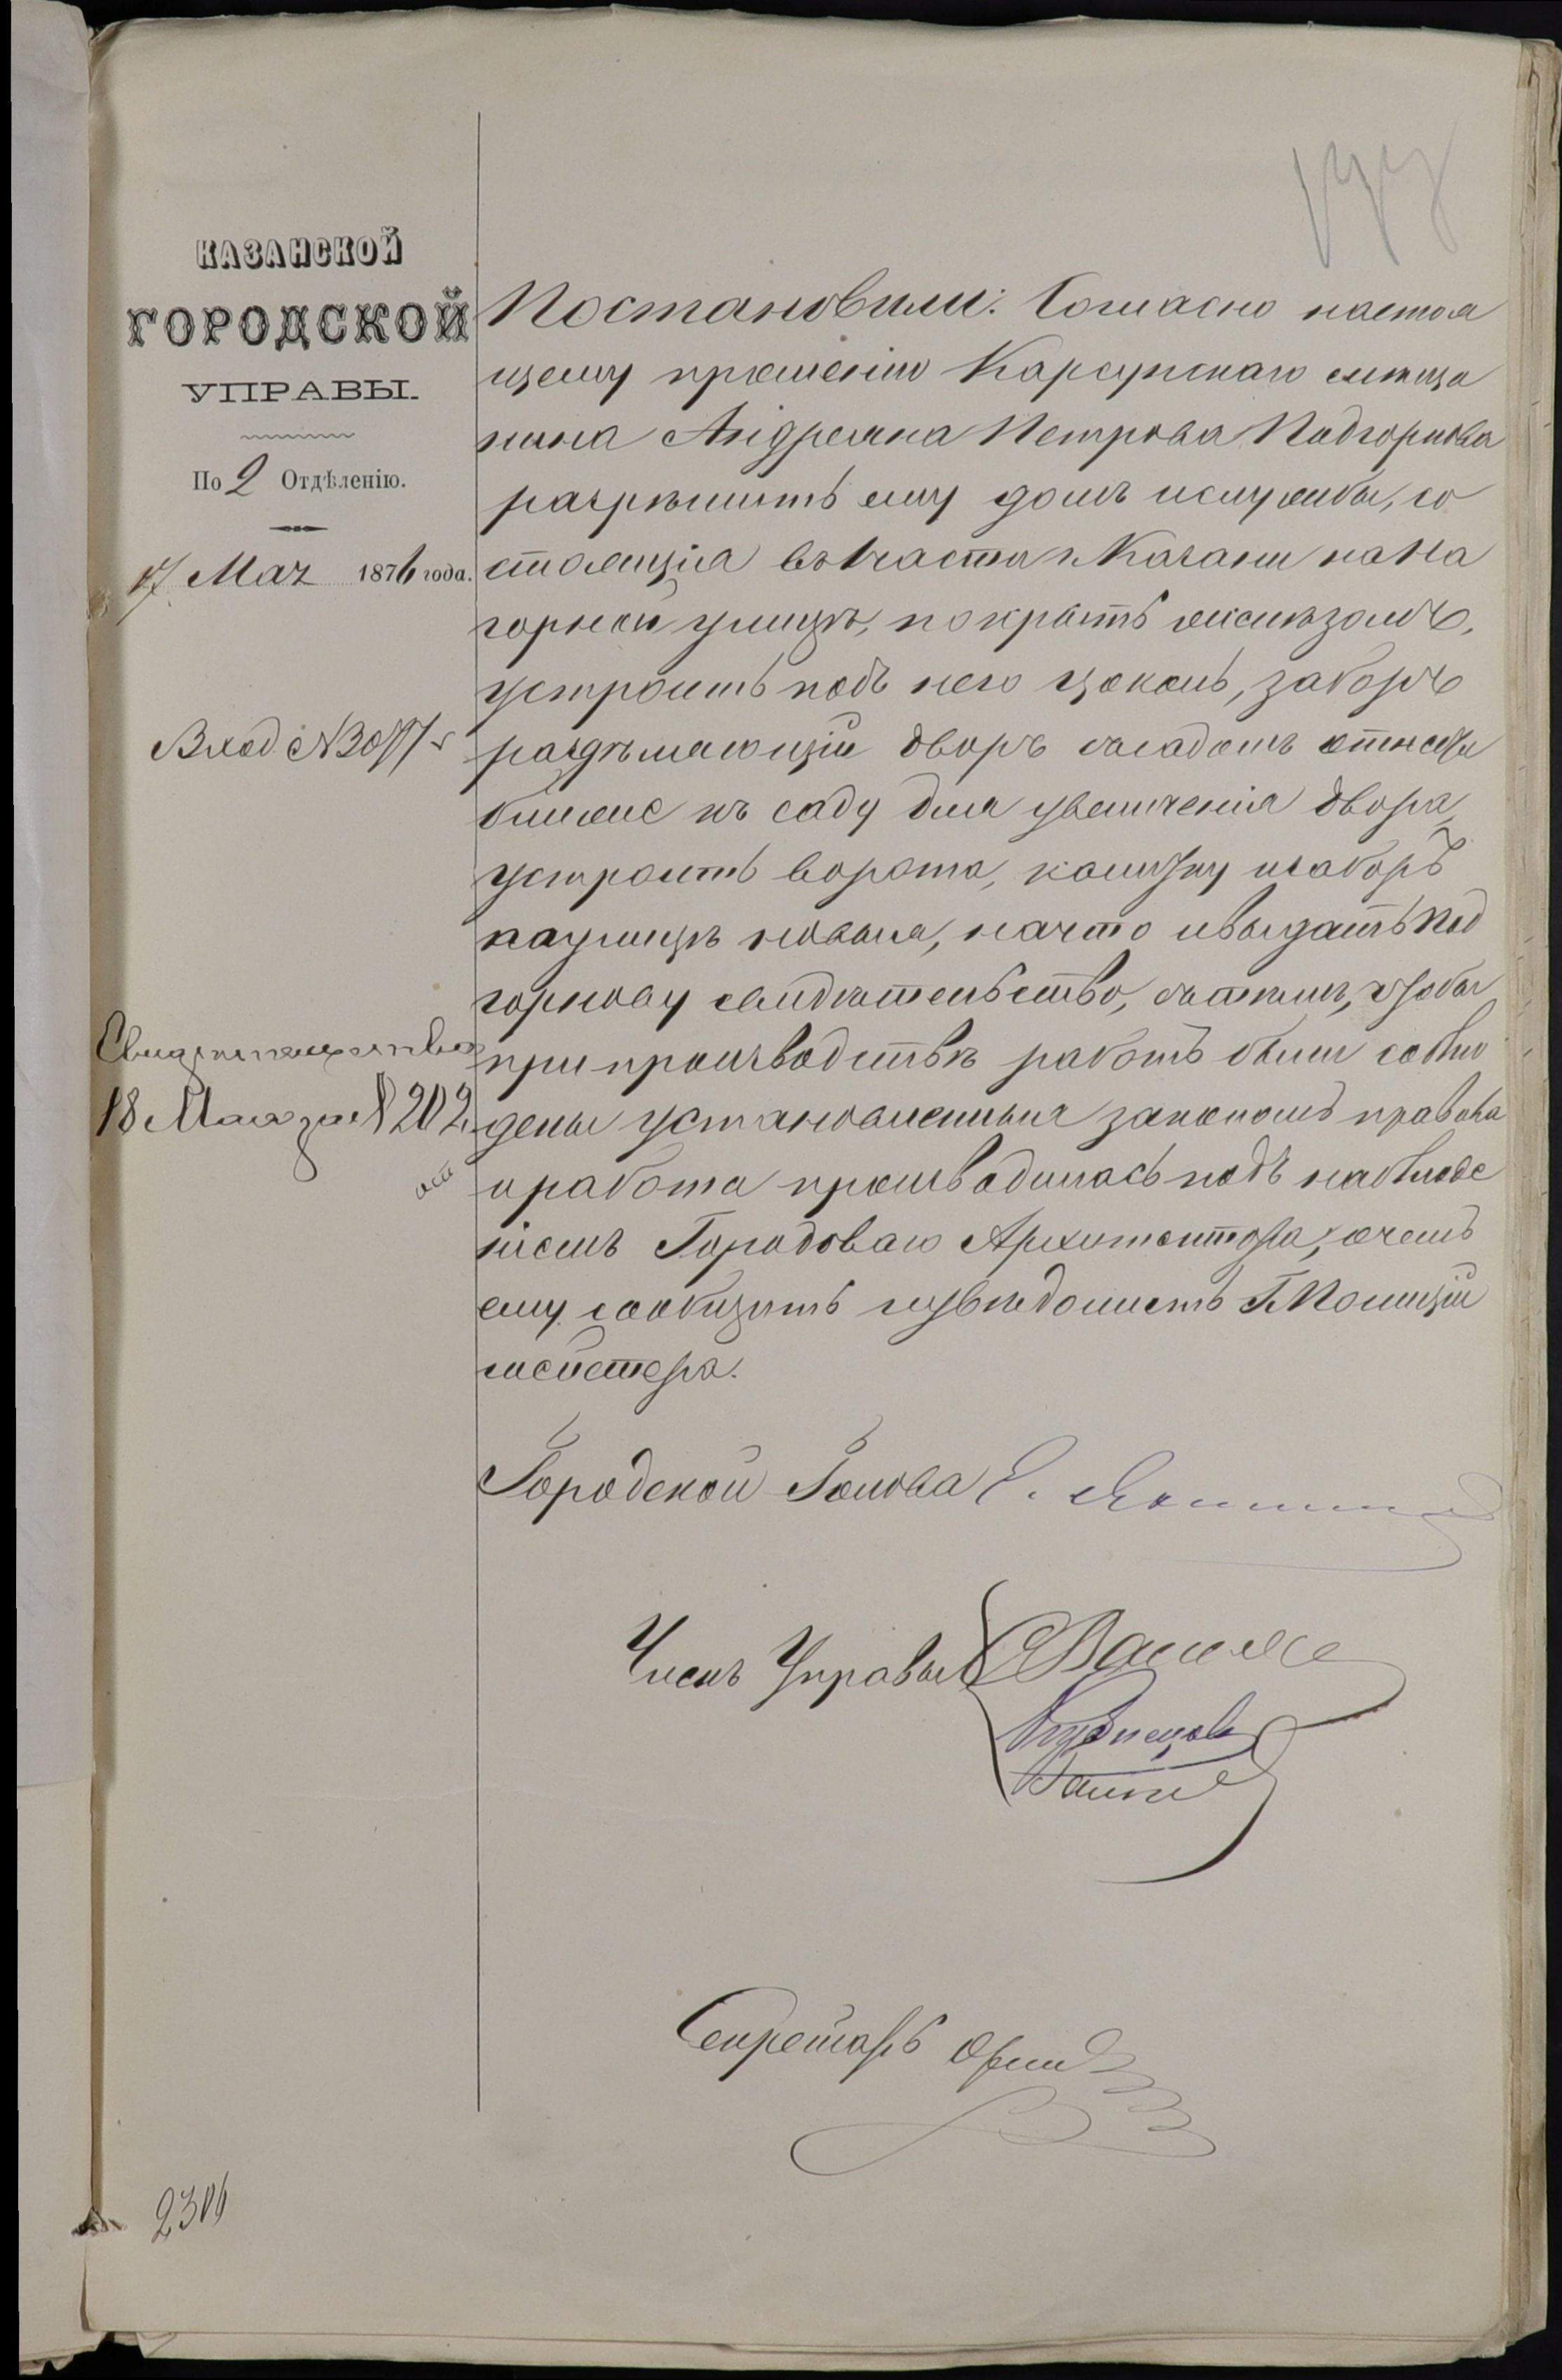 КАЗАНСКОЙ
ГОРОДСКОЙ
УПРАВЫ.
По 2 Отдѣленію.
17 Мая 1876 года.
Вход №
Свидѣтельство
18 Мая за № 202
Постановили: Согласно настоя
щему прошенію Карсунскаго мѣща
нина Андреяна Петрова Подгорнова
разрѣшить ему домъ и службы, со
стоящія въ 1 части г. Казани на На
горной улицѣ, покрыть желѣзомъ,
устроить подъ него цоколь, заборъ
раздѣляющій дворъ съ садомъ отнести
ближе къ саду для увеличенія двора,
устроить ворота, калитку и заборъ
на улицѣ новыя, на что и выдать Под
горнову свидѣтельство, съ тѣмъ, чтобы
при производствѣ работъ были соблю
дены установленныя закономъ правила
и работа производилась подъ наблюде
ніемъ Городоваго Архитектора, о чемъ
ему сообщить и увѣдомить Г. Полиций
мейстера.
Городской Голова Е.
Члены Управы
Кузнецовъ
Секретарь